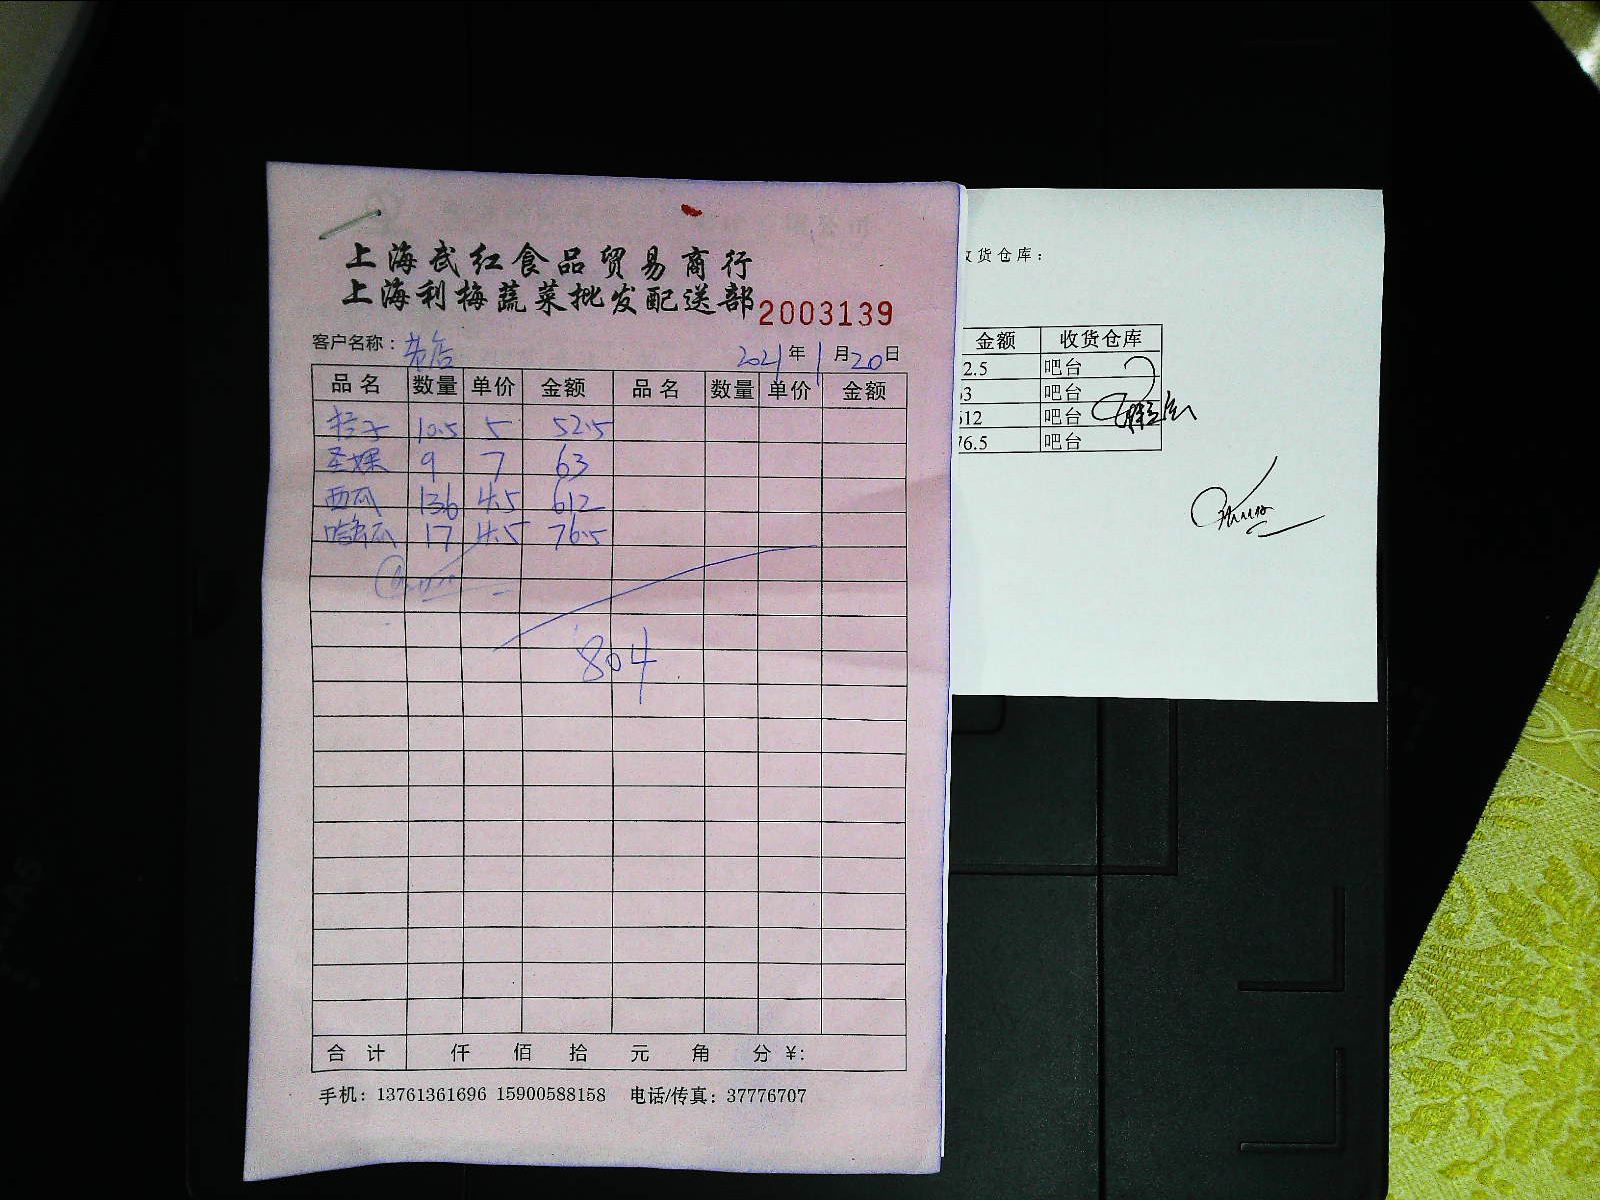 上海武红食品贸易商行
上海利梅蔬菜批发配送部 2003139
客户名称： 2021年1月20日
品名 数量 单价 金额 品名 数量 单价 金额
桔子 10.5 5 52.5
圣女果 9 7 63
西瓜 136 4.5 612
哈密瓜 17 4.5 76.5
804
合计 仟 佰 拾 元 角 分 ¥:
手机：13761361696 15900588158 电话/传真：37776707
货仓库：
金额 收货仓库
2.5 吧台
3 吧台
612 吧台
76.5 吧台